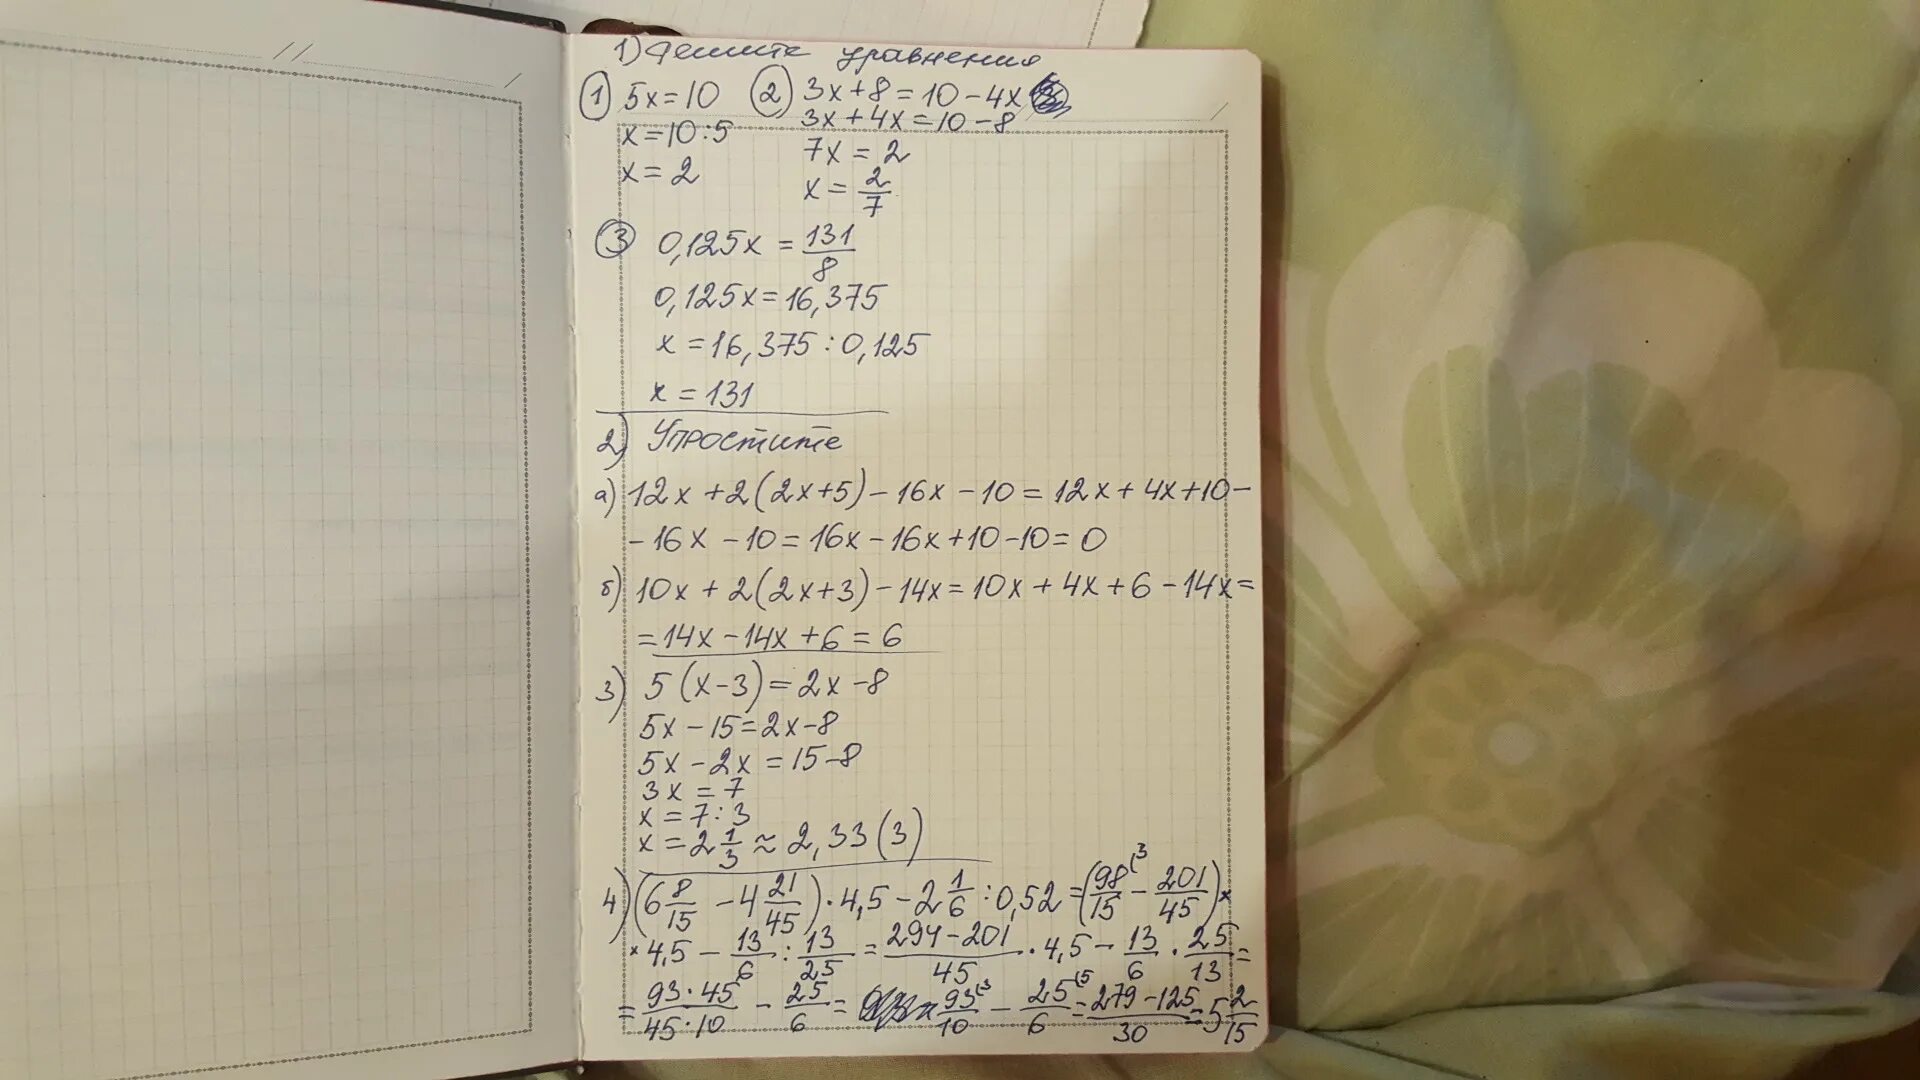 1) Решите уравнения
① 5x=10 ② 3x+8=10-4x
x=10:5 3x+4x=10-8
x=2 7x=2
x=2/7
③ 0,125x=131/8
0,125x=16,375
x=16,375:0,125
x=131
2) Упростите
а) 12x+2(2x+5)-16x-10=12x+4x+10-
-16x-10=16x-16x+10-10=0
б) 10x+2(2x+3)-14x=10x+4x+6-14x=
=14x-14x+6=6
3) 5(x-3)=2x-8
5x-15=2x-8
5x-2x=15-8
3x=7
x=7:3
x=2 1/3≈2,33(3)
4) (6 8/15-4 21/45)·4,5-2 1/6:0,52=(98/15(3-201/45)×
×4,5-13/6:13/25=294-201/45·4,5-13/6·25/13=
=93·45/45·10-25/6=93/10(3-25/6(5=279-125/30=5 2/15